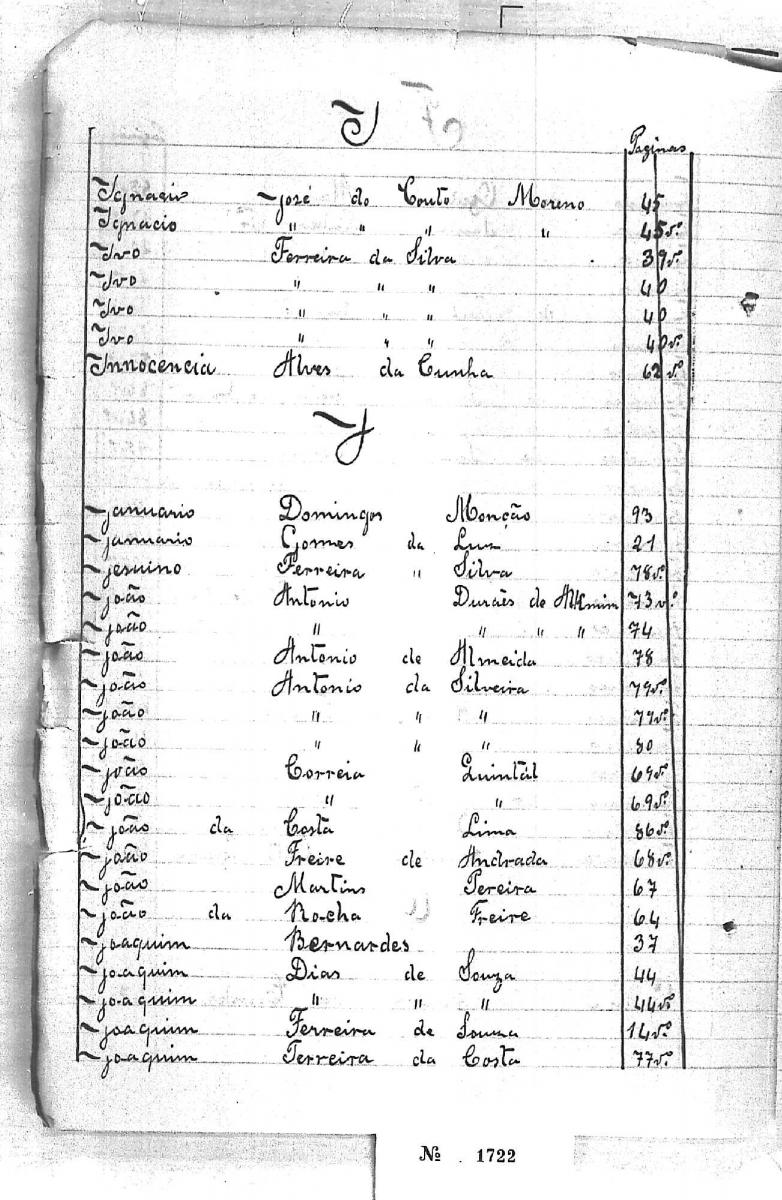 I
Paginas
Ignacio José do Couto Moreno 45
Ignacio " " " " 45vº
Ivo Ferreira da Silva 39vº
Ivo " " " 40
Ivo " " " 40
Ivo " " " 40vº
Innocencia Alves da Cunha 62vº
J
Januario Domingos Monção 93
Januario Gomes da Luz 21
Jesuino Ferreira " Silva 78vº
João Antonio Durães de Alkmim 73vº
João " " " " 74
João Antonio de Almeida 78
João Antonio da Silveira 79vº
João " " " 79vº
João " " " 80
João Correia Quintál 69vº
João " " 69vº
João da Costa Lima 86vº
João Freire de Andrada 68vº
João Martins Pereira 67
João da Rocha Freire 64
Joaquim Bernardes 37
Joaquim Dias de Souza 44
Joaquim " " " 44vº
Joaquim Ferreira de Souza 14vº
Joaquim Ferreira da Costa 77vº
№ 1722